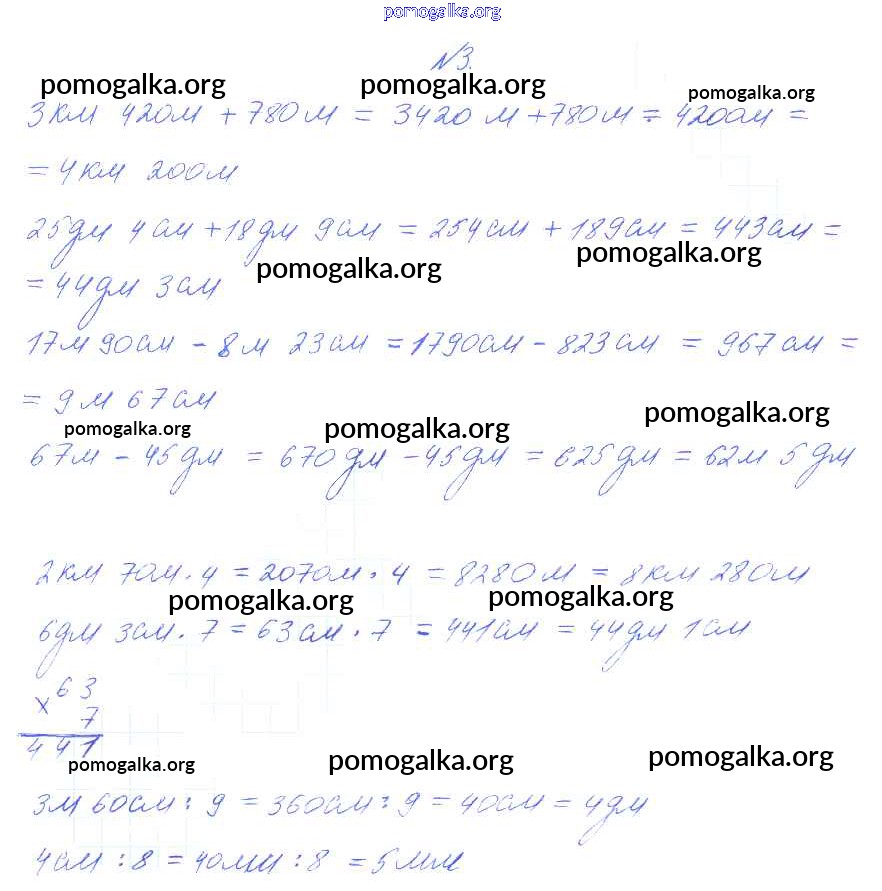 pomogalka.org
N3.
pomogalka.org pomogalka.org pomogalka.org
3км 420м + 780м = 3420 м + 780м = 4200м =
= 4км 200м
25дм 4см + 18дм 9см = 254см + 189см = 443см =
pomogalka.org pomogalka.org
= 44дм 3см
17м 90см - 8м 23см = 1790см - 823см = 967см =
= 9м 67см
pomogalka.org pomogalka.org pomogalka.org
67м - 45дм = 670дм - 45дм = 625дм = 62м 5дм
2км 70м · 4 = 2070м · 4 = 8280м = 8км 280м
pomogalka.org pomogalka.org
6дм 3см · 7 = 63см · 7 = 441см = 44дм 1см
x 63
7
441
pomogalka.org pomogalka.org pomogalka.org
3м 60см : 9 = 360см : 9 = 40см = 4дм
4см : 8 = 40мм : 8 = 5мм